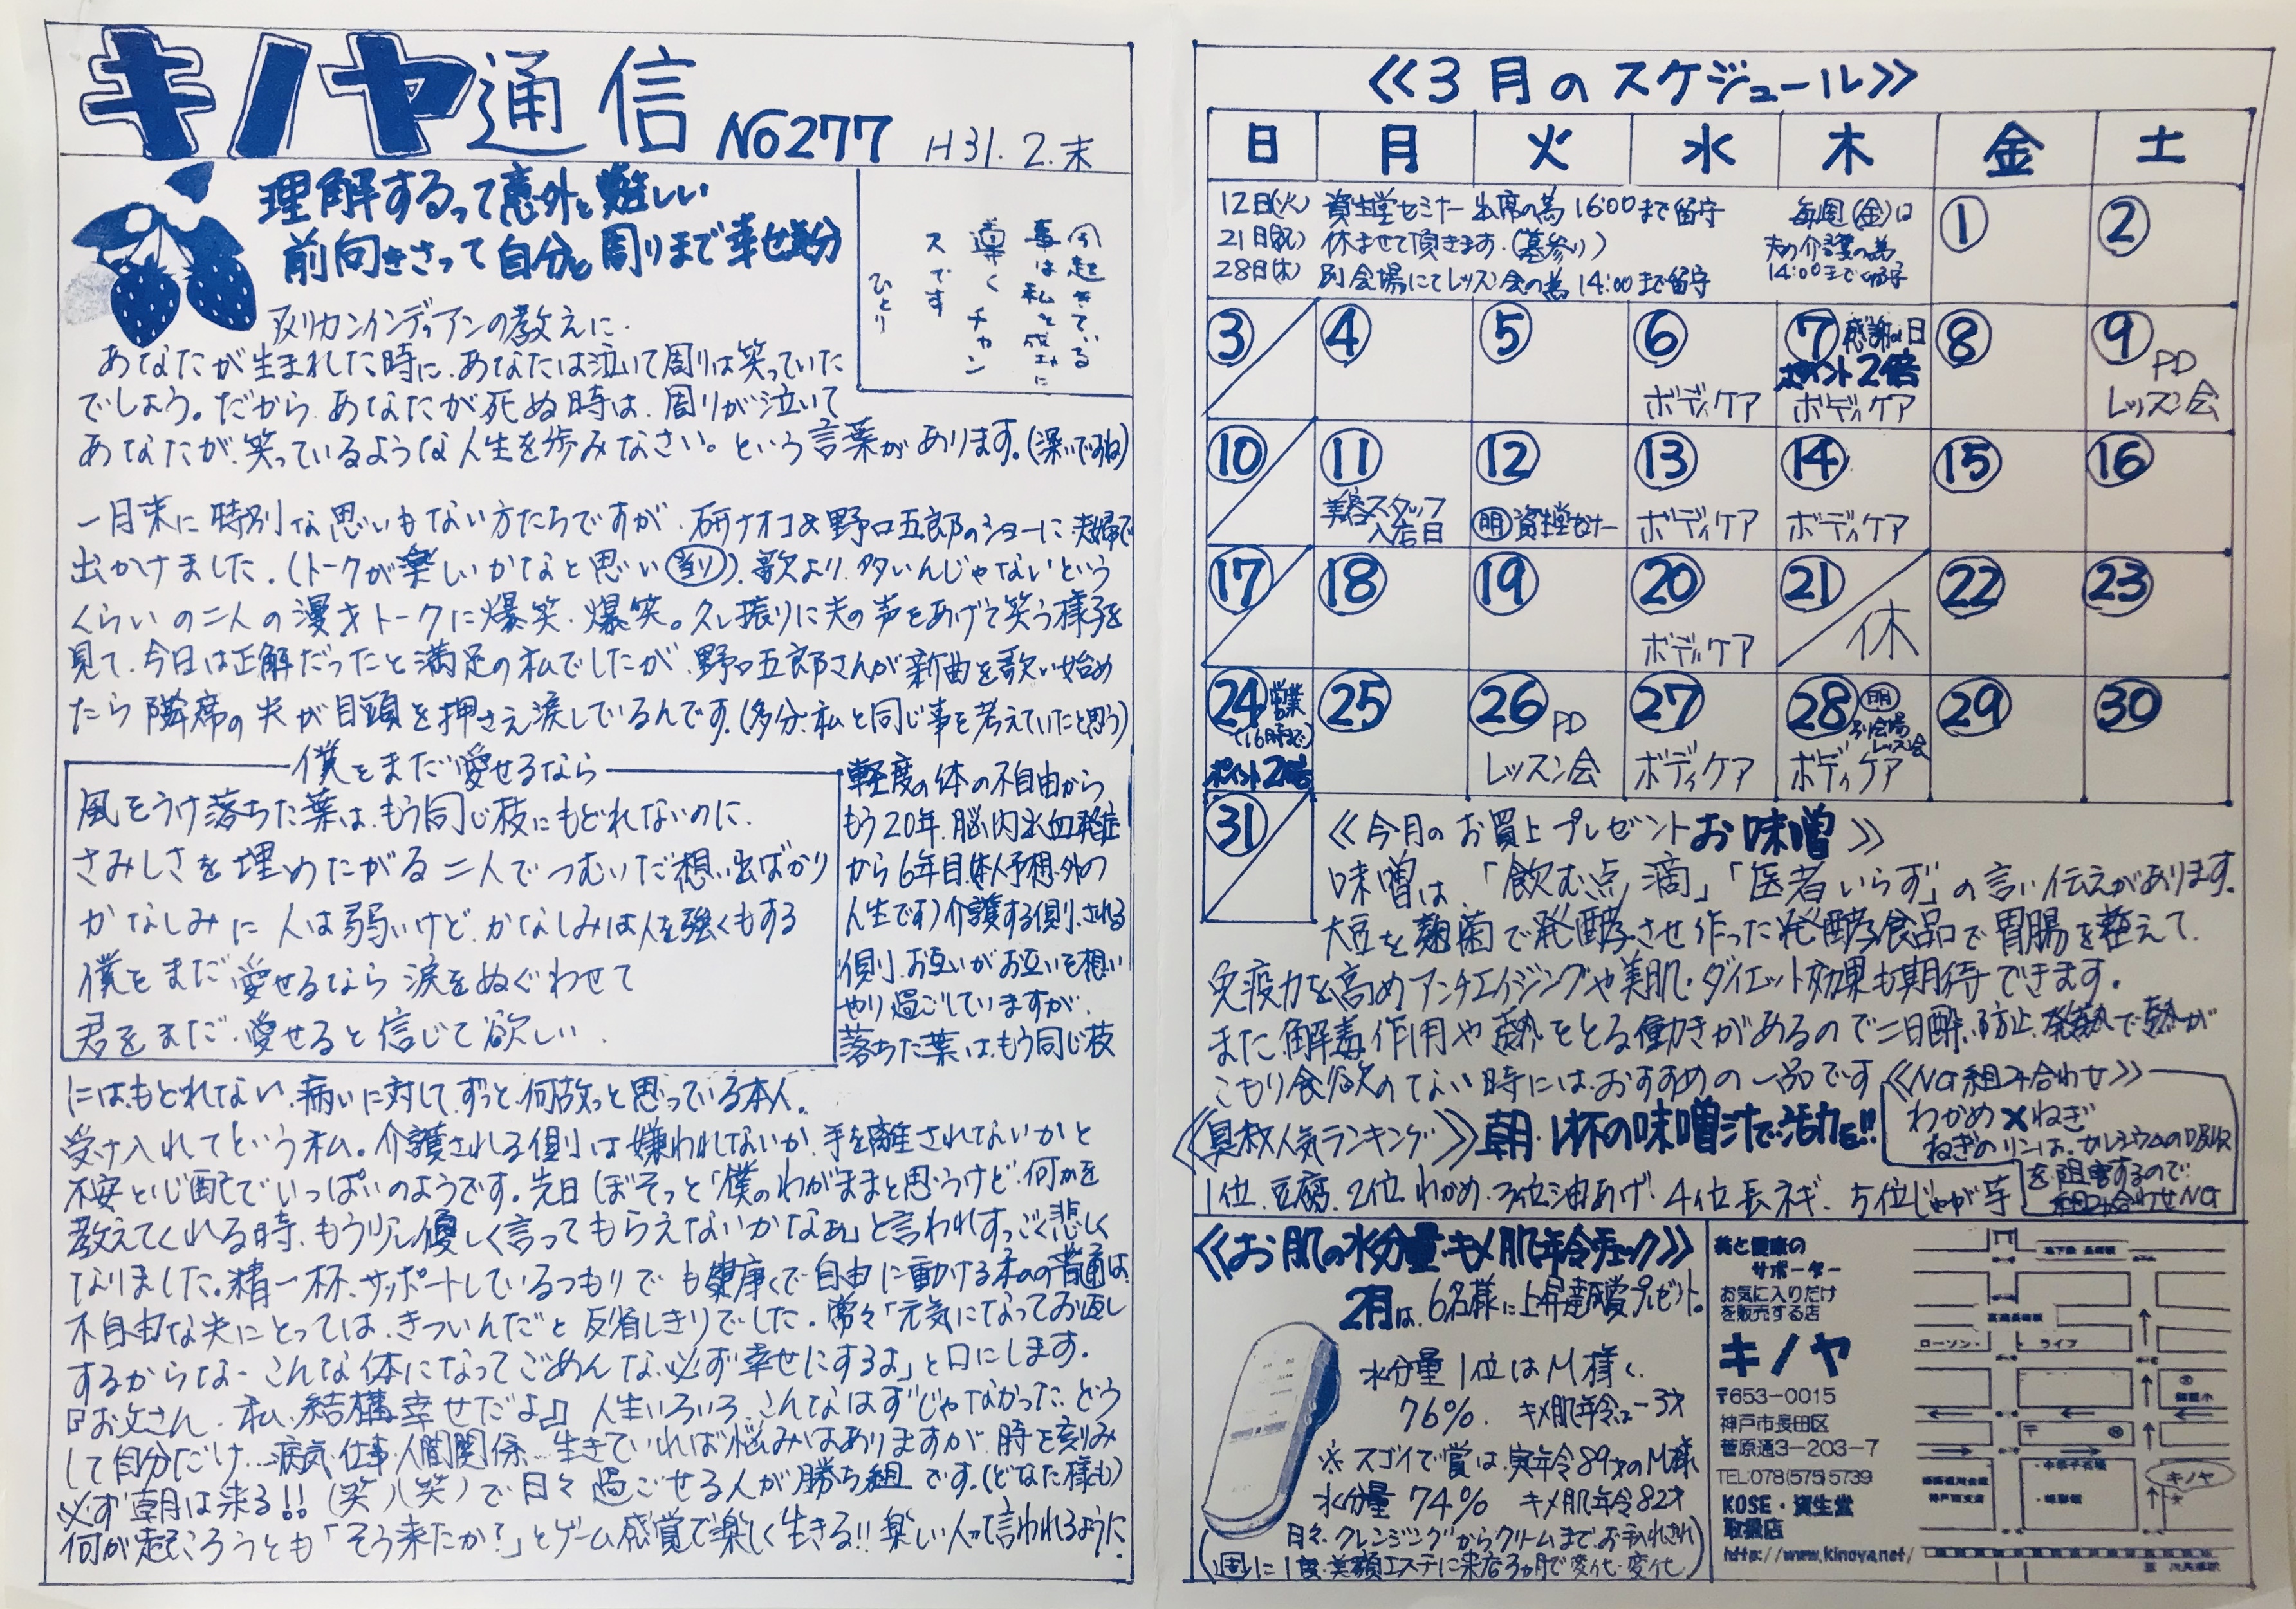 キノヤ通信 No277 H31.2.末
理解するって意外と難しい
前向きさって自分と周りまで幸せ気分
今起きている
事は私を成功に
導くチャン
スです
ひとり
アメリカンインディアンの教えに、
あなたが生まれた時に、あなたは泣いて周りは笑っていた
でしょう。だから、あなたが死ぬ時は、周りが泣いて
あなたが、笑っているような人生を歩みなさい。という言葉があります。(深いですね)
一月末に特別な思いもない方たちですが、研ナオコ&野口五郎のショーに夫婦で
出かけました。(トークが楽しいかなと思い当り)、歌より、多いんじゃないという
くらいの二人の漫才トークに爆笑・爆笑。久し振りに夫の声をあげて笑う様子を
見て、今日は正解だったと満足の私でしたが、野口五郎さんが新曲を歌い始め
たら隣席の夫が目頭を押さえ涙しているんです。(多分、私と同じ事を考えていたと思う)
僕をまだ愛せるなら
風をうけ落ちた葉は、もう同じ枝にもどれないのに、
さみしさを埋めたがる二人でつむいだ想い出ばかり
かなしみに人は弱いけど、かなしみは人を強くもする
僕をまだ愛せるなら涙をぬぐわせて
君をまだ、愛せると信じて欲しい、
軽度の体の不自由から
もう20年、脳内出血発症
から6年目(本人予想外の
人生です)介護する側、される
側、お互いがお互いを想い
やり過ごしていますが、
落ちた葉は、もう同じ枝
にはもどれない、病いに対して、ずっと、何故っと思っている本人。
受け入れてという私。介護される側は嫌われないか、手を離されないかと
不安と心配でいっぱいのようです。先日ぼそっと「僕のわがままと思うけど、何かを
教えてくれる時、もう少し優しく言ってもらえないかなぁ」と言われすっごく悲しく
なりました。精一杯、サッポートしているつもりでも健康で自由に動ける私の普通は、
不自由な夫にとっては、きついんだと反省しきりでした。常々「元気になってお返し
するからな-こんな体になってごめんな、必ず幸せにするよ」と口にします。
『お父さん、私、結構幸せだよ』人生いろいろ、こんなはずじゃなかった、どう
して自分だけ…病気・仕事・人間関係…生きていれば悩みはありますが、時を刻み
必ず朝は来る!!(笑)(笑)で日々過ごせる人が勝ち組です。(どなた様も)
何が起ころうとも「そう来たか?」とゲーム感覚で楽しく生きる!!楽しい人って言われるように、
《3月のスケジュール》
日 月 火 水 木 金 土
12日(火) 資生堂セミナー出席の為16:00まで留守
21日(祝) 休ませて頂きます。(墓参り)
28日(木) 別会場にてレッスン会の為14:00まで留守
毎週(金)は
夫の介護の為
14:00まで留守
1 2
3 4 5 6 7 感謝の日 8 9 PD
ポイント2倍
ボディケア ボディケア レッスン会
10 11 12 13 14 15 16
美容スタッフ
入店日 資生堂セミナー ボディケア ボディケア
17 18 19 20 21 22 23
ボディケア 休
24 営業 25 26 PD 27 28 別会場 29 30
(16時まで) レッスン会
ポイント2倍 レッスン会 ボディケア ボディケア
31
《今月のお買上プレゼントお味噌》
味噌は、「飲む点滴」「医者いらず」の言い伝えがあります。
大豆を麹菌で発酵させ作った発酵食品で胃腸を整えて、
免疫力を高めアンチエイジングや美肌・ダイエット効果も期待できます。
また、解毒作用や熱をとる働きがあるので二日酔い防止、発熱で熱が
こもり食欲のてない時には、おすすめの一品です
《NG組み合わせ》
わかめ×ねぎ
ねぎのリンは、カルシウムの吸収
を阻害するので、
組み合わせNG
《具材人気ランキング》朝・1杯の味噌汁で活力を!!
1位、豆腐、2位わかめ、3位油あげ、4位長ネギ、5位じゃが芋
《お肌の水分量・キメ肌年令チェック》
2月は、6名様に上昇達成賞プレゼント。
水分量1位はM様く、
76%、 キメ肌年令は-3才
※スゴイで賞は、実年令89才のM様
水分量74% キメ肌年令82才
日々、クレンジングからクリームまで、お手入れされ
週に1度、美顔エステに来店3ヵ月で変化・変化
美と健康の
サポーター
お気に入りだけ
を販売する店
キノヤ
〒653-0015
神戸市長田区
菅原通3-203-7
TEL:078(575)5739
KOSE・資生堂
取扱店
http://www.kinoya.net/
ローソン・
ライフ
キノヤ